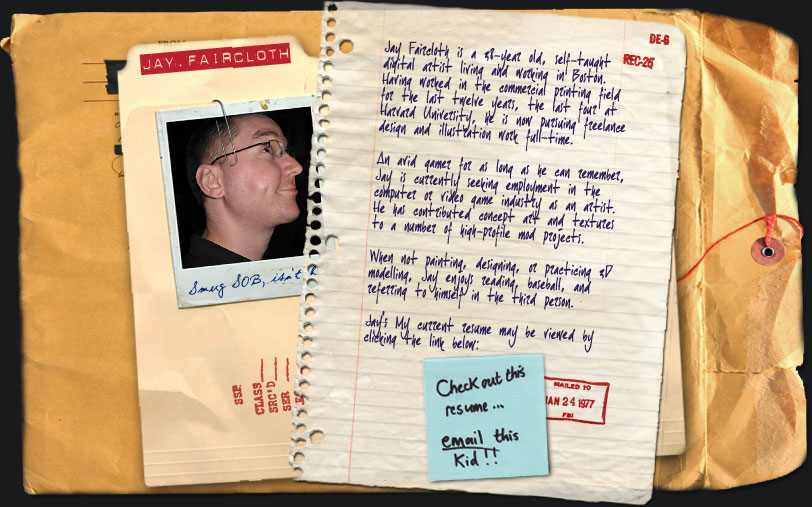 JAY. FAIRCLOTH
Smug SOB, isn't
SSP.
CLASS
SRC'D
SER
DE-6
REC-26
Jay Faircloth is a 38-year old, self-taught
digital artist living and working in Boston.
Having worked in the commercial printing field
for the last twelve years, the last four at
Harvard University, he is now pursuing freelance
design and illustration work full-time.
An avid gamer for as long as he can remember,
Jay is currently seeking employment in the
computer or video game industry as an artist.
He has contributed concept art and textures
to a number of high-profile mod projects.
When not painting, designing, or practicing 3D
modelling, Jay enjoys reading, baseball, and
referring to himself in the third person.
Jay's My current resume may be viewed by
clicking the link below:
Check out this
resume...
email this
kid!!
MAILED TO
JAN 24 1977
FBI